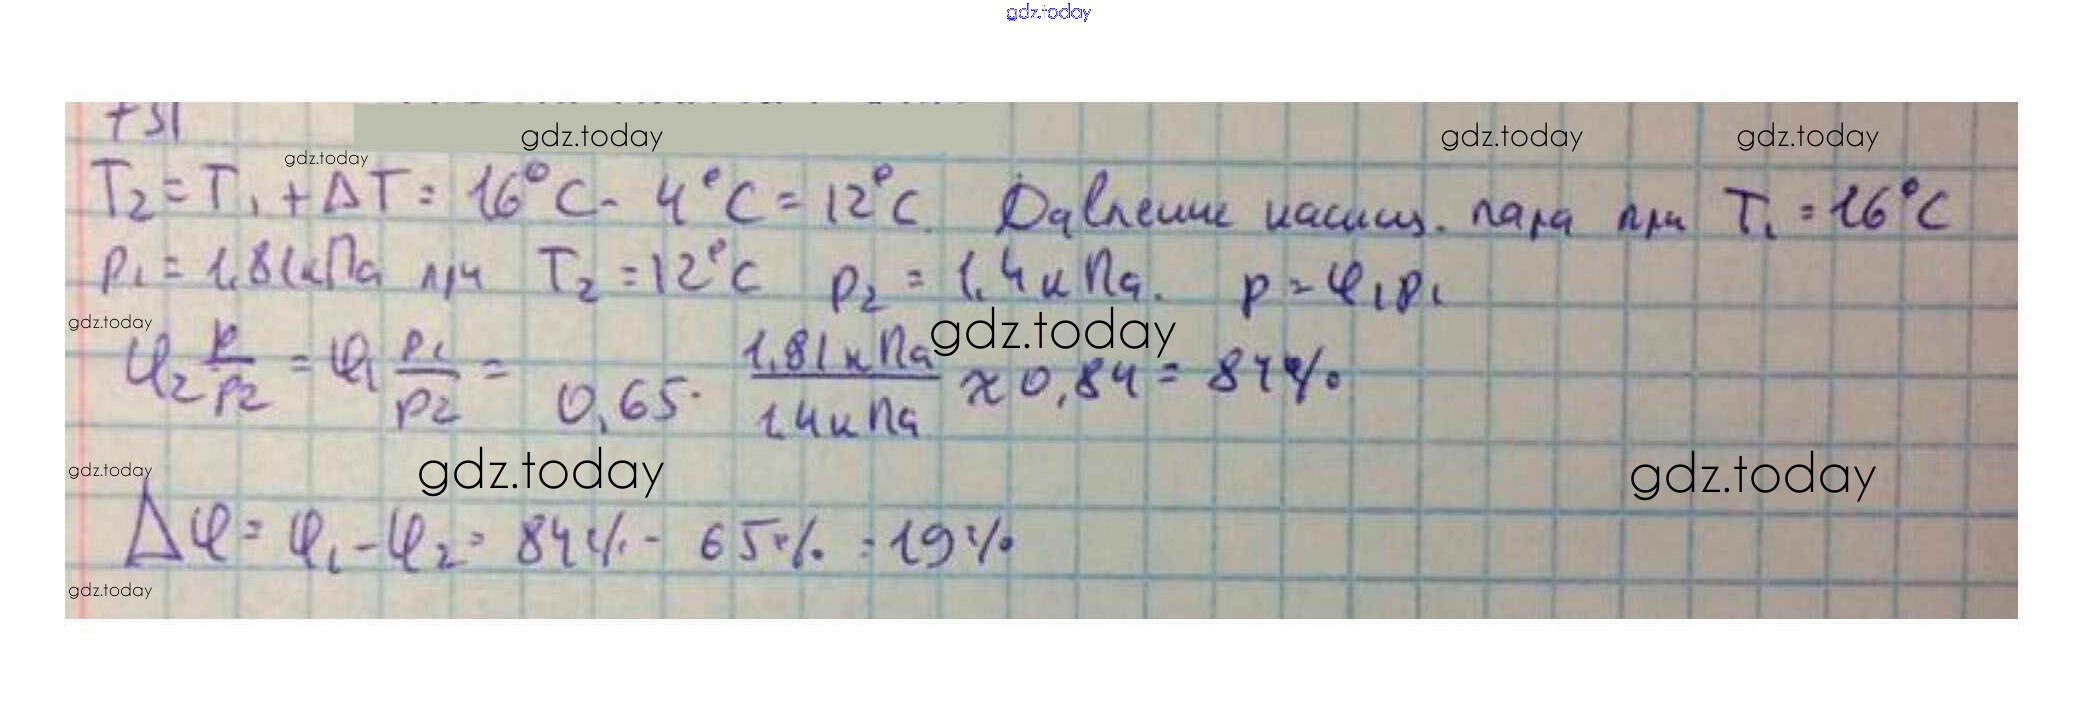 gdz.today
gdz.today gdz.today gdz.today
gdz.today
T₂ = T₁ + ΔT = 16°C - 4°C = 12°C. Давление насыщ. пара при T₁ = 16°C
p₁ = 1,81кПа при T₂ = 12°C p₂ = 1,4кПа. p = φ₁p₁
gdz.today gdz.today
φ₂ p/p₂ = φ₁ p₁/p₂ = 0,65 · 1,81кПа/1,4кПа ≈ 0,84 = 84%
gdz.today gdz.today gdz.today
Δφ = φ₁ - φ₂ = 84% - 65% = 19%
gdz.today